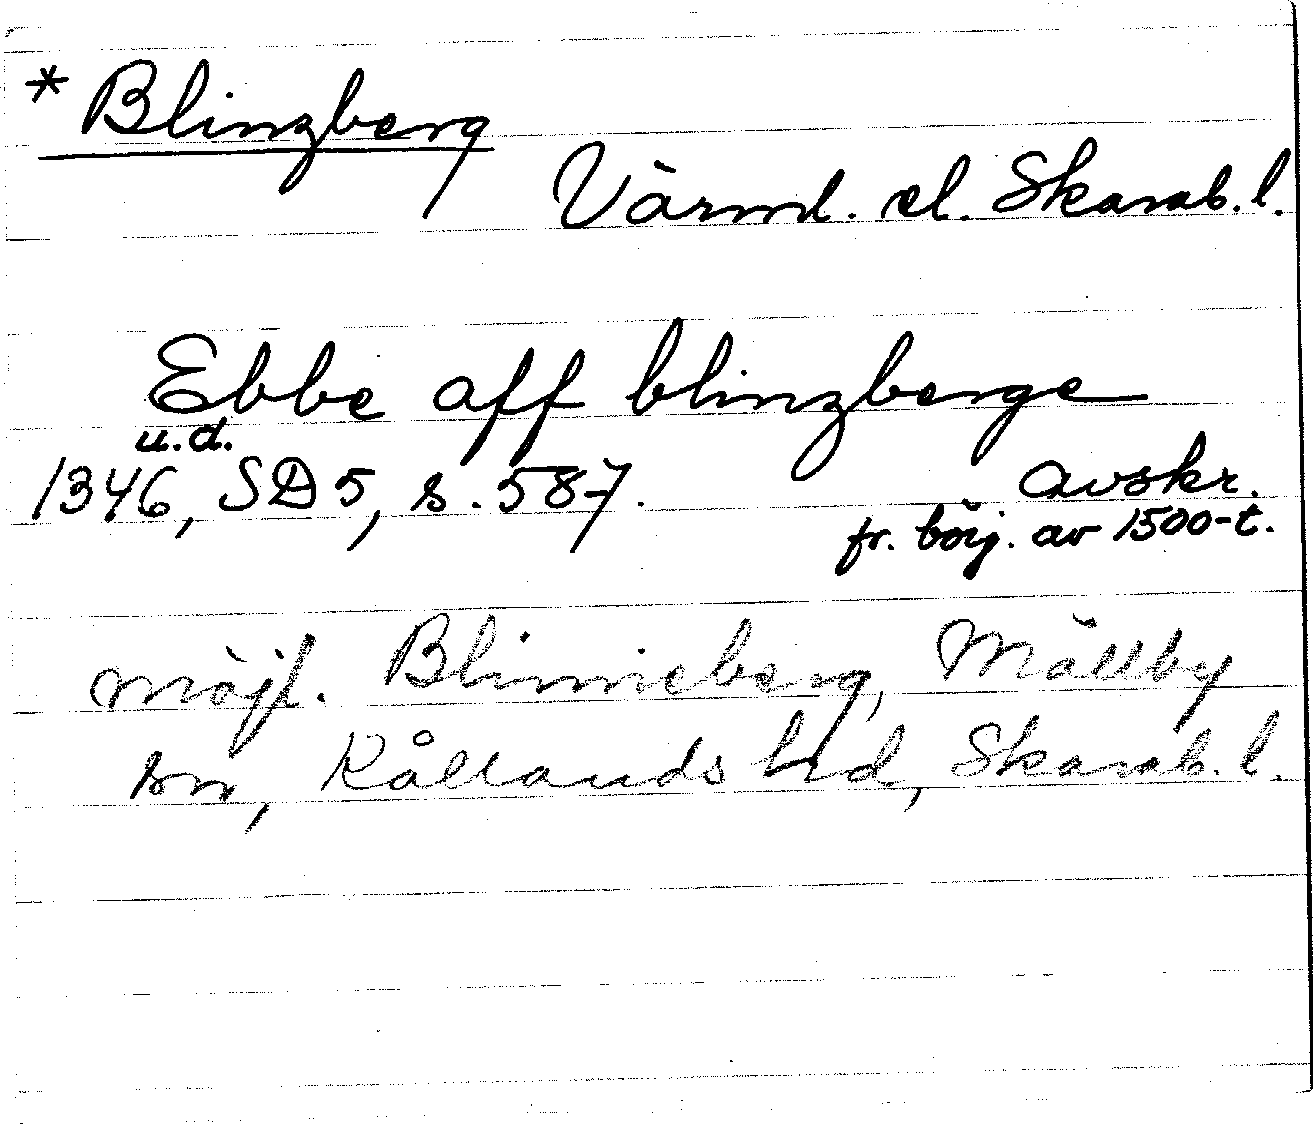 * Blinzberg
Värml. el. Skarab. l.
Ebbe aff blinzberge
u.d.
1346, SD 5, s. 587. avskr.
fr. börj. av 1500-t.
möjl. Blinneberg, Mällby
sn, Kållands hd, Skarab. l.